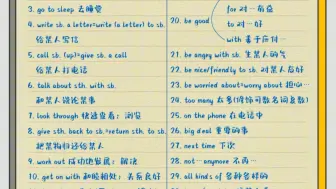 3. go to sleep 去睡觉
4. write sb. a letter=write (a letter) to sb.
给某人写信
5. call sb. (up)=give sb. a call
给某人打电话
6. talk about sth. with sb.
和某人谈论某事
7. look through 快速查看；浏览
8. give sth. back to sb.=return sth. to sb.
把某物归还给某人
9. work out 成功地发展；解决
10. get on with 和睦相处；关系良好
20. be good
for 对…有益
to 对…好
with 善于应付…
21. be angry with sb. 生某人的气
22. be nice/friendly to sb. 对某人友好
23. be worried about=worry about 担心…
24. too many 太多(修饰可数名词复数)
25. on the phone 在电话中
26. big deal 重要的事
27. next time 下次
28. not…anymore 不再…
29. all kinds of 各种各样的